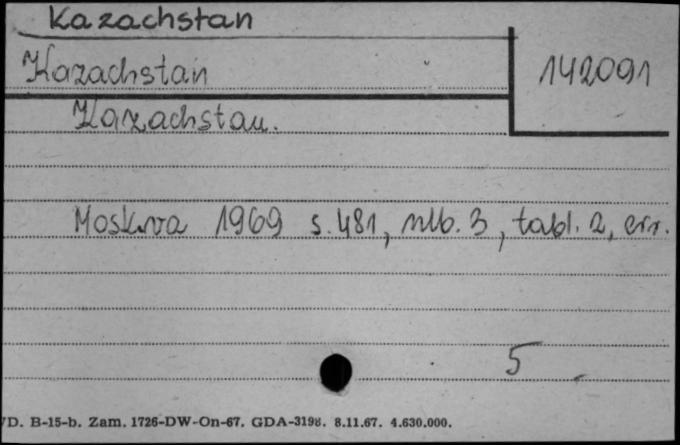 Kazachstan
Kazachstan
142091
Kazachstan.
Moskva 1969 s. 481, nlb. 3, tabl. 2, err.
5
D. B-15-b. Zam. 1726-DW-On-67. GDA-3198. 8.11.67. 4.630.000.